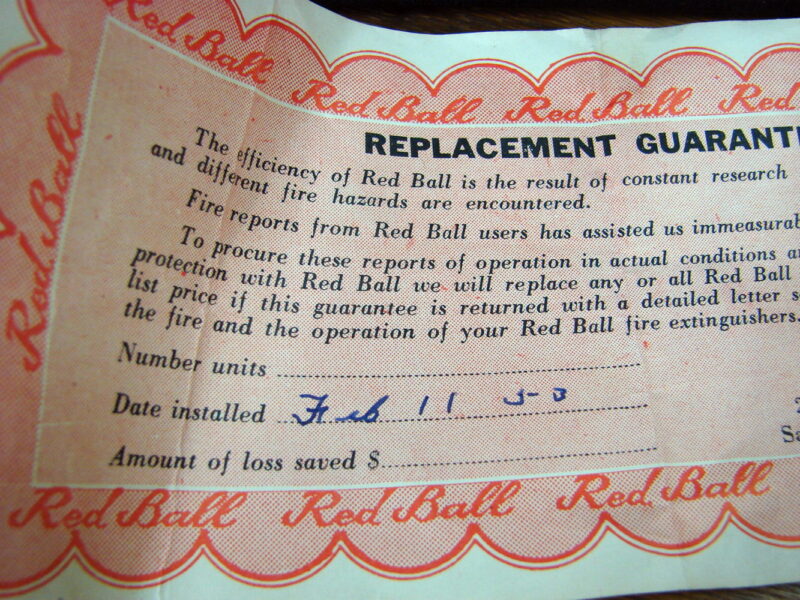 Red Ball
Red Ball Red Ball Red
Red Ball
REPLACEMENT GUARANT
The efficiency of Red Ball is the result of constant research
and different fire hazards are encountered.
Fire reports from Red Ball users has assisted us immeasurab
To procure these reports of operation in actual conditions a
protection with Red Ball we will replace any or all Red Ball
list price if this guarantee is returned with a detailed letter s
the fire and the operation of your Red Ball fire extinguishers.
Number units
Date installed Feb 11
Amount of loss saved $
Sa
Red Ball Red Ball Red Ball